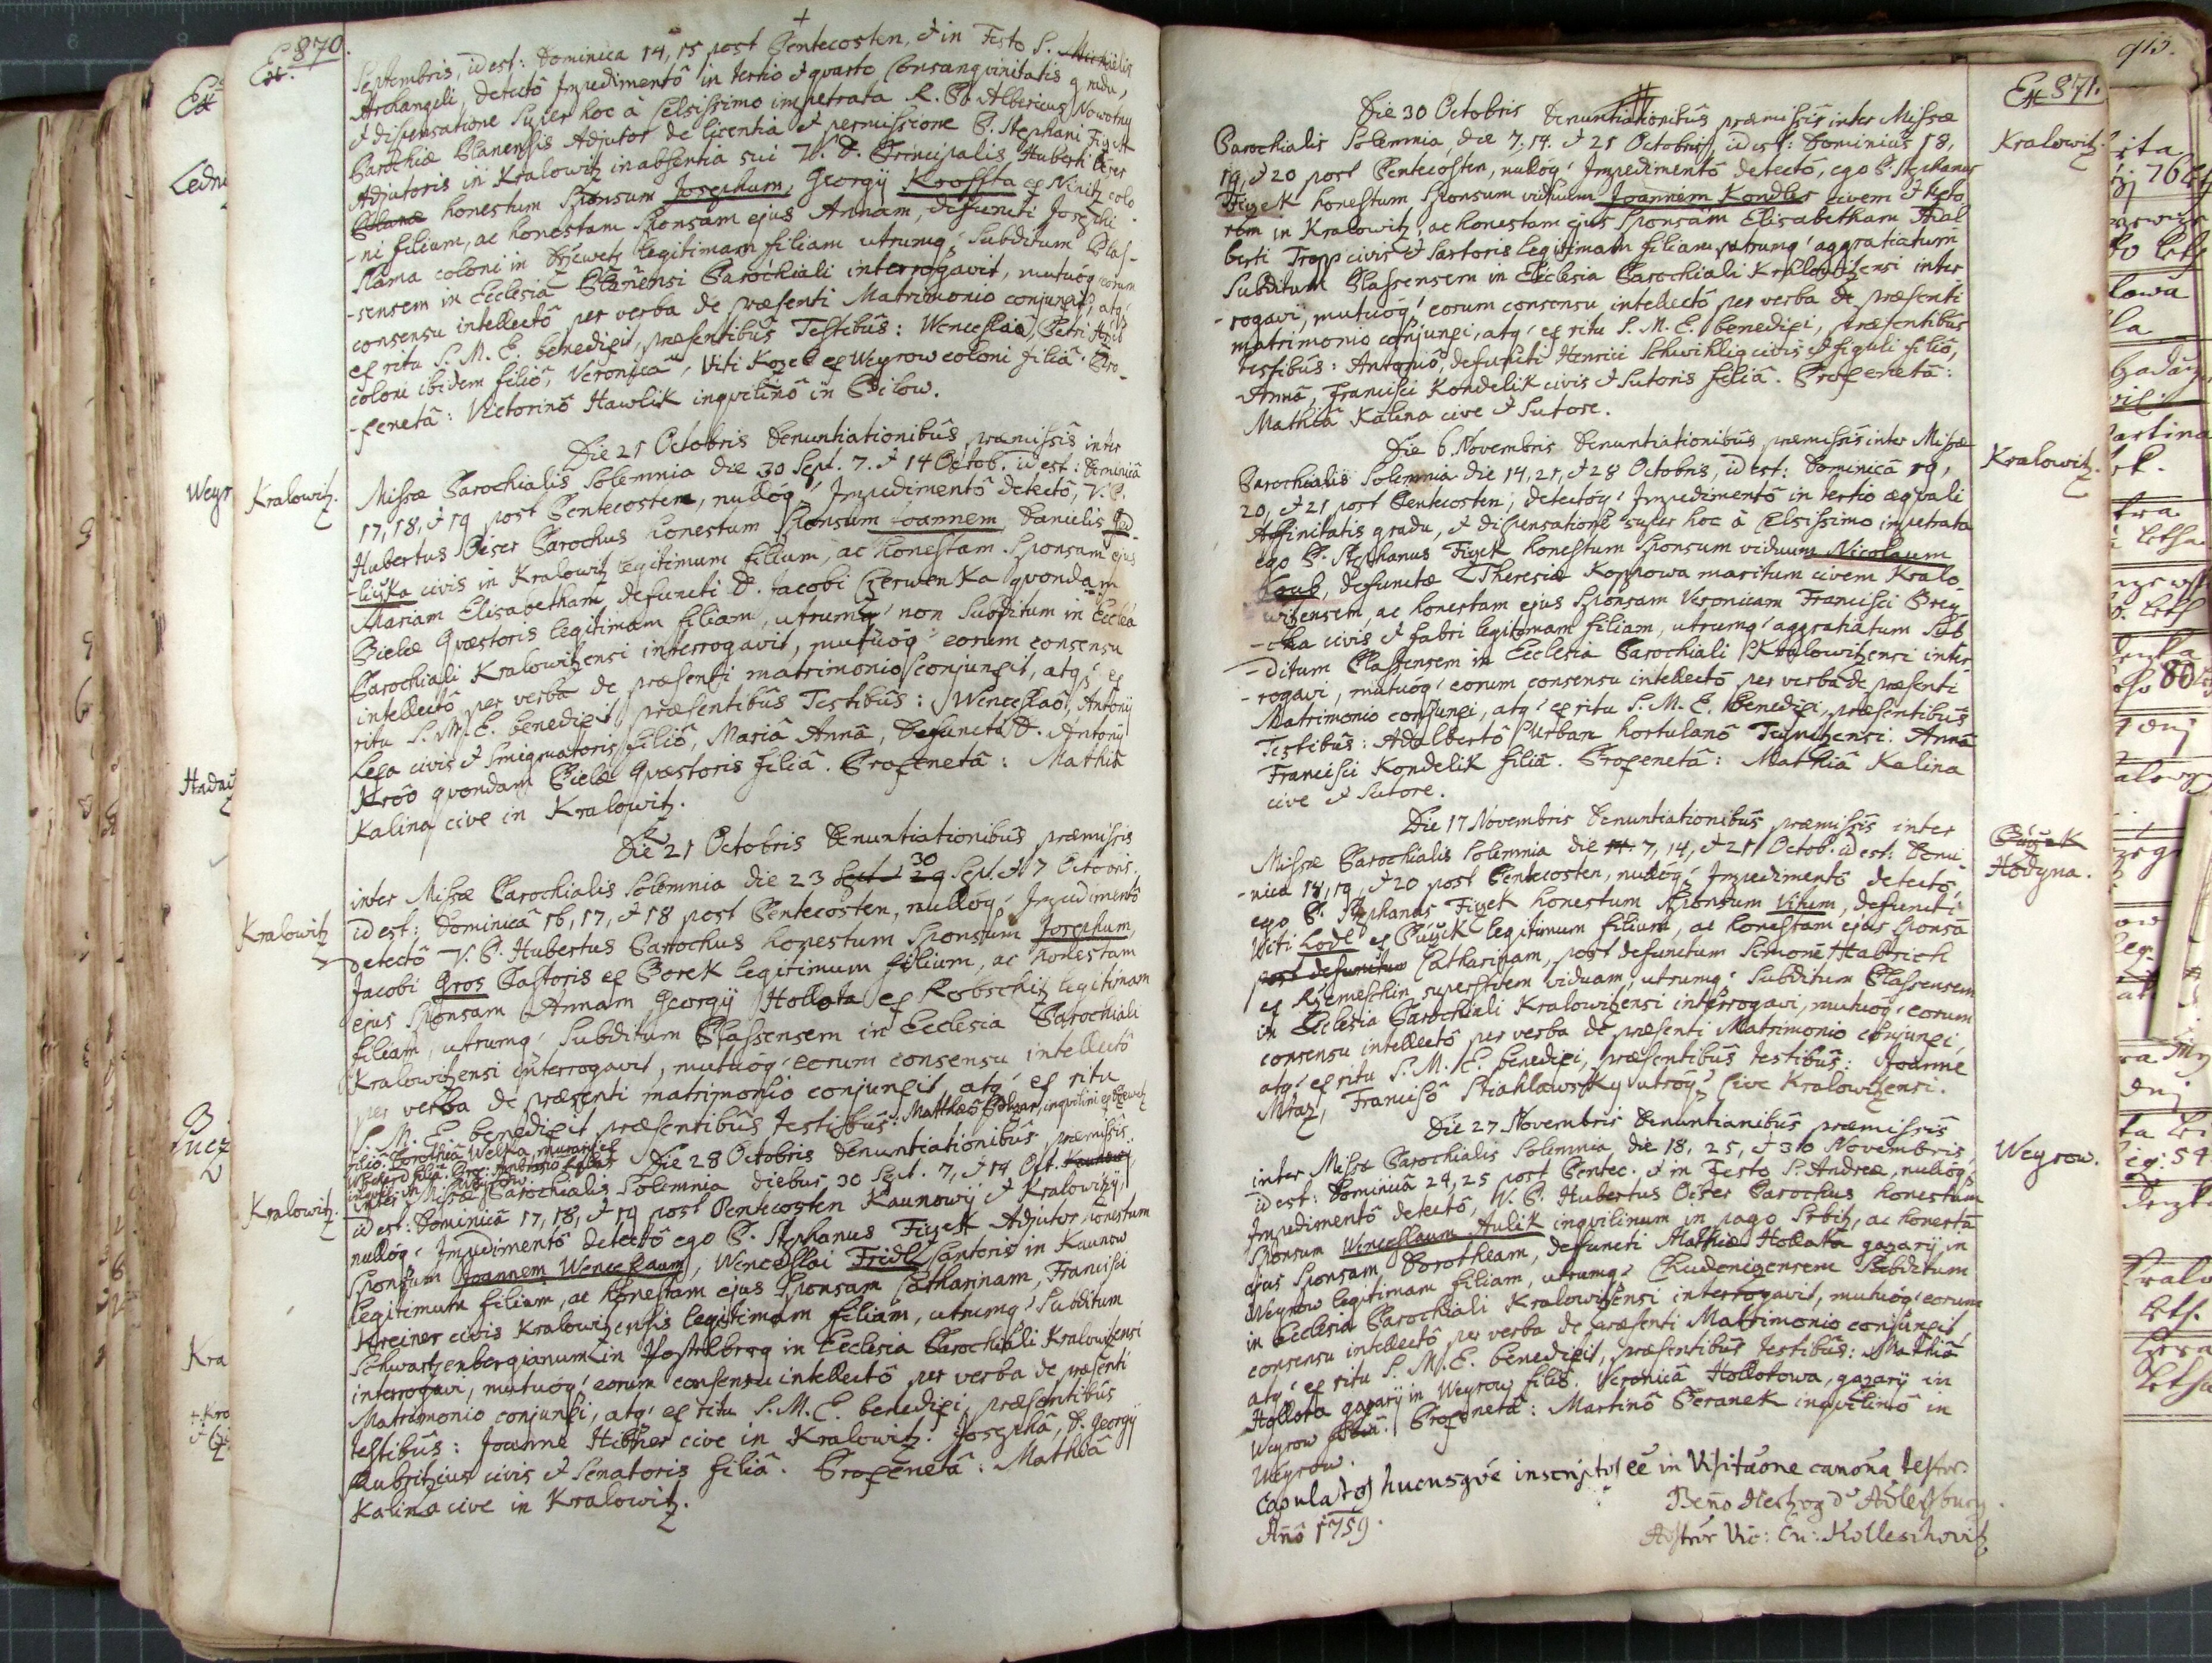 870.
Ex.
Septembris, id est: Dominica 14, 15 post Pentecosten, et in Festo S. Michaëlis
Archangeli, detectô Impedimentô in tertio et quarto Consangvinitatis gradu,
et dispensatione super hoc à Celsissimo impetrata R. P. Albericus Nowotny
Parochiæ Planensis Adjutor de licentia et permissione P. Stephani Fizek
Adjutoris in Kralowitz in absentia sui V. P. Principalis Huberti Oeser
honestum Sponsum Josephum, Georgÿ Krofsta ex Ninitz colo
-ni filium, ac honestam Sponsam ejus Annam, defuncti Josephi
Slama coloni in legitimam filiam utrumq' Subditum Plas-
-sensem in Ecclesia Planensi Parochiali interrogavit, mutuóq eorum
consensu intellectô per verba de præsenti Matrimonio conjunxit, atq'
ex ritu S. M. E. benedixit, præsentibus Testibûs: Wenceslaô, Petri
coloni ibidem filiô, Veronicâ, Viti Kozel ex Weyrow coloni filiâ. Pro-
-xenetâ: Victorinô Hawlik inqvilinô in Bilow.
Kralowitz.
Die 21 Octobris Denuntiationibûs præmissîs inter
Missæ Parochialis Solemnia die 30 Sept. 7. et 14 Octob. id est: Dominicâ
17, 18, et 19 post Pentecosten, nullóq' Impedimentô detectô, V. P.
Hubertus Oeser Parochus honestum Sponsum Joannem, Danielis
-liczka civis in Kralowitz legitimum filium, ac honestam Sponsam ejus
Mariam Elisabetham defuncti D. Jacobi Czerwenka qvondam
Bielæ Qvæstoris legitimam filiam, utrumq' non Subditum in Ecclêa
Parochiali Kralowitzensi interrogavit, mutuóq' eorum consensu
intellectô per verba de præsenti matrimonio conjunxit, atq' ex
ritu S. M. E. benedixit præsentibûs Testibûs: Wenceslaô, Antonÿ
Lexa civis et Smigmatoris filiô, Mariâ Annâ, Defuncti D. Antonÿ
Kroô qvondam Bielæ Qvæstoris filiâ. Proxenetâ: Mathiâ
Kalina cive in Kralowitz.
Kralowitz
Die 21 Octobris Denuntiationibûs præmissis
inter Missæ Parochialis Solemnia die 23 Sept. 29 30 Sept. et 7 Octobris,
id est: Dominicâ 16, 17, et 18 post Pentecosten, nullóq' Impedimentô
detectô V. P. Hubertus Parochus honestum Sponsum Josephum,
Jacobi Gros Pastoris ex Borek legitimum filium, ac honestam
ejus Sponsam Annam Georgÿ Hollota ex Robschitz legitimam
filiam, utrumq' Subditum Plassensem in Ecclesia Parochiali
Kralowitzensi interrogavit, mutuóq' eorum consensu intellectô
per verba de præsenti matrimonio conjunxit, atq' ex ritu
S. M. E. benedixit præsentibus Testibûs: Matthæô inqvilini
filiô. Dorothiâ Welka, murarij ex
filiâ. Prox: Ambrosio
Kralowitz.
Die 28 Octobris Denuntiationibûs præmissîs
inter Missæ Parochialis Solemnia diebus, 30 Sept. 7, et 14 Oct. Kaunowÿ,
id est: Dominicâ 17, 18, et 19 post Pentecosten Kaunowÿ et Kralowitzÿ,
nullóq' Impedimentô detectô ego P. Stephanus Fizek Adjutor honestum
Sponsum Joannem Wenceslaum, Wenceslai Fridl Cantoris in Kaunow
legitimum filium, ac honestam ejus Sponsam Catharinam, Francisci
Kreiner civis Kralowitzensis legitimam filiam, utrumq' Subditum
Schwartzenbergianum in Postelberg in Ecclesia Parochiali Kralowitzensi
interrogavi, mutuóq' eorum consensu intellectô per verba de præsenti
Matrimonio conjunxi, atq' ex ritu S. M. E. benedixi, præsentibus
testibûs: Joanne Hibner cive in Kralowitz. Josephâ, D. Georgÿ
Kubritzius civis et Senatoris filiâ. Proxenetâ: Mathiâ
Kalina cive in Kralowitz.
Ex 871.
Kralowitz.
Die 30 Octobris Denuntiationibûs præmissîs inter Missæ
Parochialis Solemnia, die 7, 14. et 21 Octobris, id est: Dominicis 18,
19, et 20 post Pentecosten, nullóq' Impedimentô detectô, ego P. Stephanus
Fizek honestum Sponsum viduum Joannem Kondler civem et
in Kralowitz, ac honestam ejus Sponsam Elisabetham Adal
berti Tropp civis et Sartoris legitimam filiam utrumq' aggratiatum
Subditum Plassensem in Ecclesia Parochiali Kralowitzensi inter
-rogavi, mutuóq' eorum consensu intellectô per verba de præsenti
matrimonio conjunxi, atq' ex ritu S. M. E. benedixi, præsentibûs
testibûs: Antoniô, defuncti Henrici Schwihlig civis et figuli filiô,
Annâ, Francisci Kondelik civis et Sutoris filiâ. Proxenetâ:
Mathiâ Kalina cive et Sutore.
Kralowitz.
Die 6 Novembris Denuntiationibûs præmissîs inter Missæ
Parochialis Solemnia die 14, 21, et 28 Octobris, id est: Dominicâ 19,
20, et 21 post Pentecosten, detectóq' Impedimentô in tertio æqvali
Affinitatis gradu, et dispensatione super hoc à Celsissimo impetrata
ego P. Stephanus Fizek honestum Sponsum viduum Nicolaum
Koub, defunctæ Theresiæ Koppowa maritum civem Kralo
witzensem, ac honestam ejus Sponsam Veronicam Francisci Brey
-cha civis et fabri legitimam filiam, utrumq' aggratiatum Sub
-ditum Plassensem in Ecclesia Parochiali Kralowitzensi inter
-rogavi, mutuóq' eorum consensu intellectô per verba de præsenti
Matrimonio conjunxi, atq' ex ritu S. M. E. benedixi, præsentibûs
Testibûs: Adalbertô Urban hortulanô. Annâ
Francisci Kondelik filiâ. Proxenetâ: Mathiâ Kalina
cive et Sutore.
Hodyna.
Die 17 Novembris Denuntiationibûs præmissîs inter
Missæ Parochialis Solemnia die 14. 7, 14, et 21 Octob. id est: Domi-
-nica 18, 19, et 20 post Pentecosten, nullóq' Impedimentô detectô,
ego P. Stephanus Fizek honestum Sponsum Vitum, defuncti
Viti Lodl ex legitimum filium, ac honestam ejus Sponsâ
post defunctum Catharinam, post defunctum Simonê Habrich
ex Rzemeschin superstitem viduam, utrumq' Subditum Plassensem
in Ecclesia Parochiali Kralowitzensi interrogavi, mutuóq' eorum
consensu intellectô per verba de præsenti Matrimonio conjunxi,
atq' ex ritu S. M. E. benedixi, præsentibûs testibûs: Joanne
Mraz, Franciscô Stiahlawsky utróq' Cive Kralowitzensi.
Weyrow.
Die 27 Novembris Denuntianibûs præmissîs
inter Missæ Parochialis Solemnia, die 18, 25, et 30 Novembris,
id est: Dominicâ 24, 25 post Pentec. et in Festo S. Andreæ, nullóq'
Impedimentô detectô, V. P. Hubertus Oeser Parochus honestum
Sponsum Wenceslaum Aulik inqvilinum in pago Srbitz, ac honestâ
ejus Sponsam Dorotheam, defuncti Mathiæ Hollata gazarÿ in
Weyrow legitimam filiam, utrumq' Chudenizensem Subditum
in Ecclesia Parochiali Kralowitzensi interrogavit, mutuóq' eorum
consensu intellectô per verba de præsenti Matrimonio conjunxit,
atq' ex ritu S. M. E. benedixit, præsentibus testibûs: Mathiâ
Hollota gazarÿ in Weyrow filiô. Veronicâ Hollotowa, gazarÿ in
Weyrow filiâ. Proxenetâ: Martinô Beranek inqvilinô in
Weyrow.
Copulatos hucusqve inscriptos êê in Visitâone canônâ testor
Año 1759.
Beño Hertzog d' Adlersburg.
Vic: Kolleschovitz